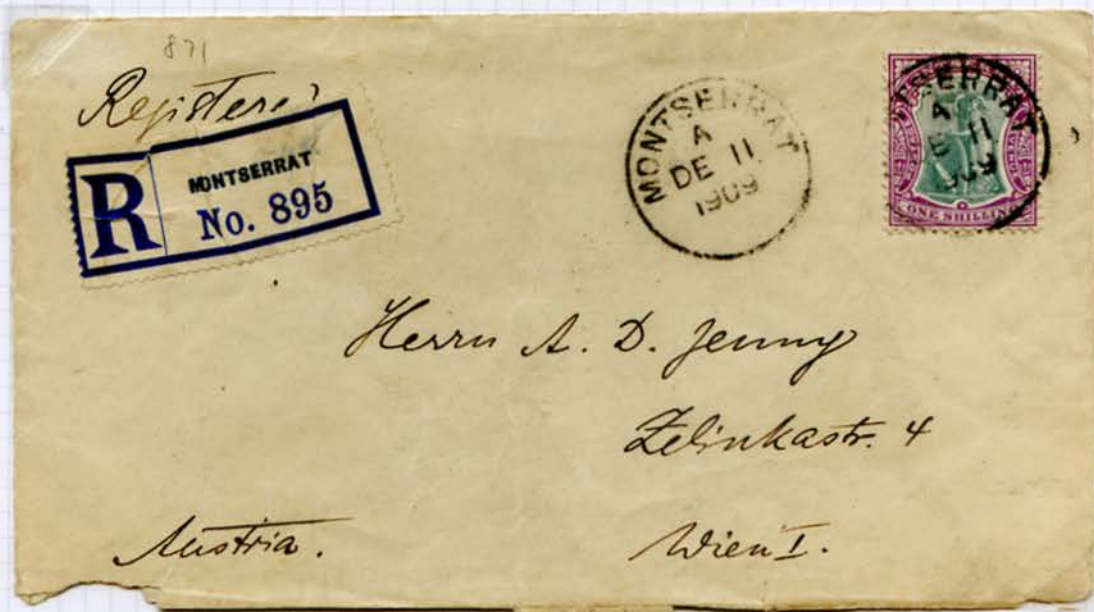 871
Registered
R
MONTSERRAT
No. 895
MONTSERRAT
A
DE 11
1909
TSERRAT
A
E 11
909
ONE SHILLING
Herrn A. D. Jenny
Zelinkastr. 4
Austria.
Wien I.